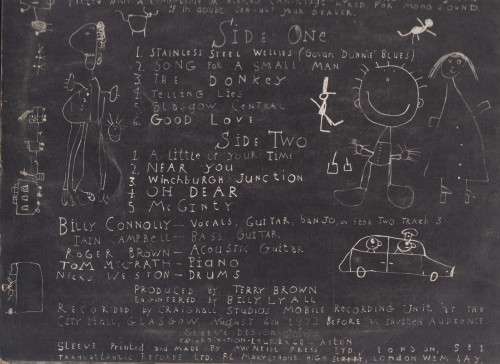 IF IN DOUBT CONSULT YOUR DEALER.
SIDE ONE
1. STAINLESS STEEL WELLIES (GOVAN DUNNIE BLUES)
2. SONG FOR A SMALL MAN
3. THE DONKEY
4. TELLING LIES
5. GLASGOW CENTRAL
6. GOOD LOVE
SIDE TWO
1. A LITTLE OF YOUR TIME
2. NEAR YOU
3 WINCHBURGH JUNCTION
4 OH DEAR
5 McGINTY
BILLY CONNOLLY — VOCALS, GUITAR, BANJO, SIDE TWO TRACK 3
IAIN CAMPBELL — BASS GUITAR
ROGER BROWN — ACOUSTIC GUITAR
TOM McGRATH — PIANO
NICK WESTON — DRUMS
PRODUCED BY TERRY BROWN
ENGINEERED BY BILLY LYALL
RECORDED BY CRAIGHALL STUDIOS MOBILE RECORDING UNIT AT THE
CITY HALL, GLASGOW AUGUST 6TH 1972 BEFORE AN INVITED AUDIENCE
SLEEVE DESIGN
LAURENCE ASTON
SLEEVE PRINTED AND MADE BY MacNEILL PRESS LTD. LONDON, SE1
TRANSATLANTIC RECORDS LTD. 86 MARYLEBONE HIGH STREET, LONDON W1M 4AY